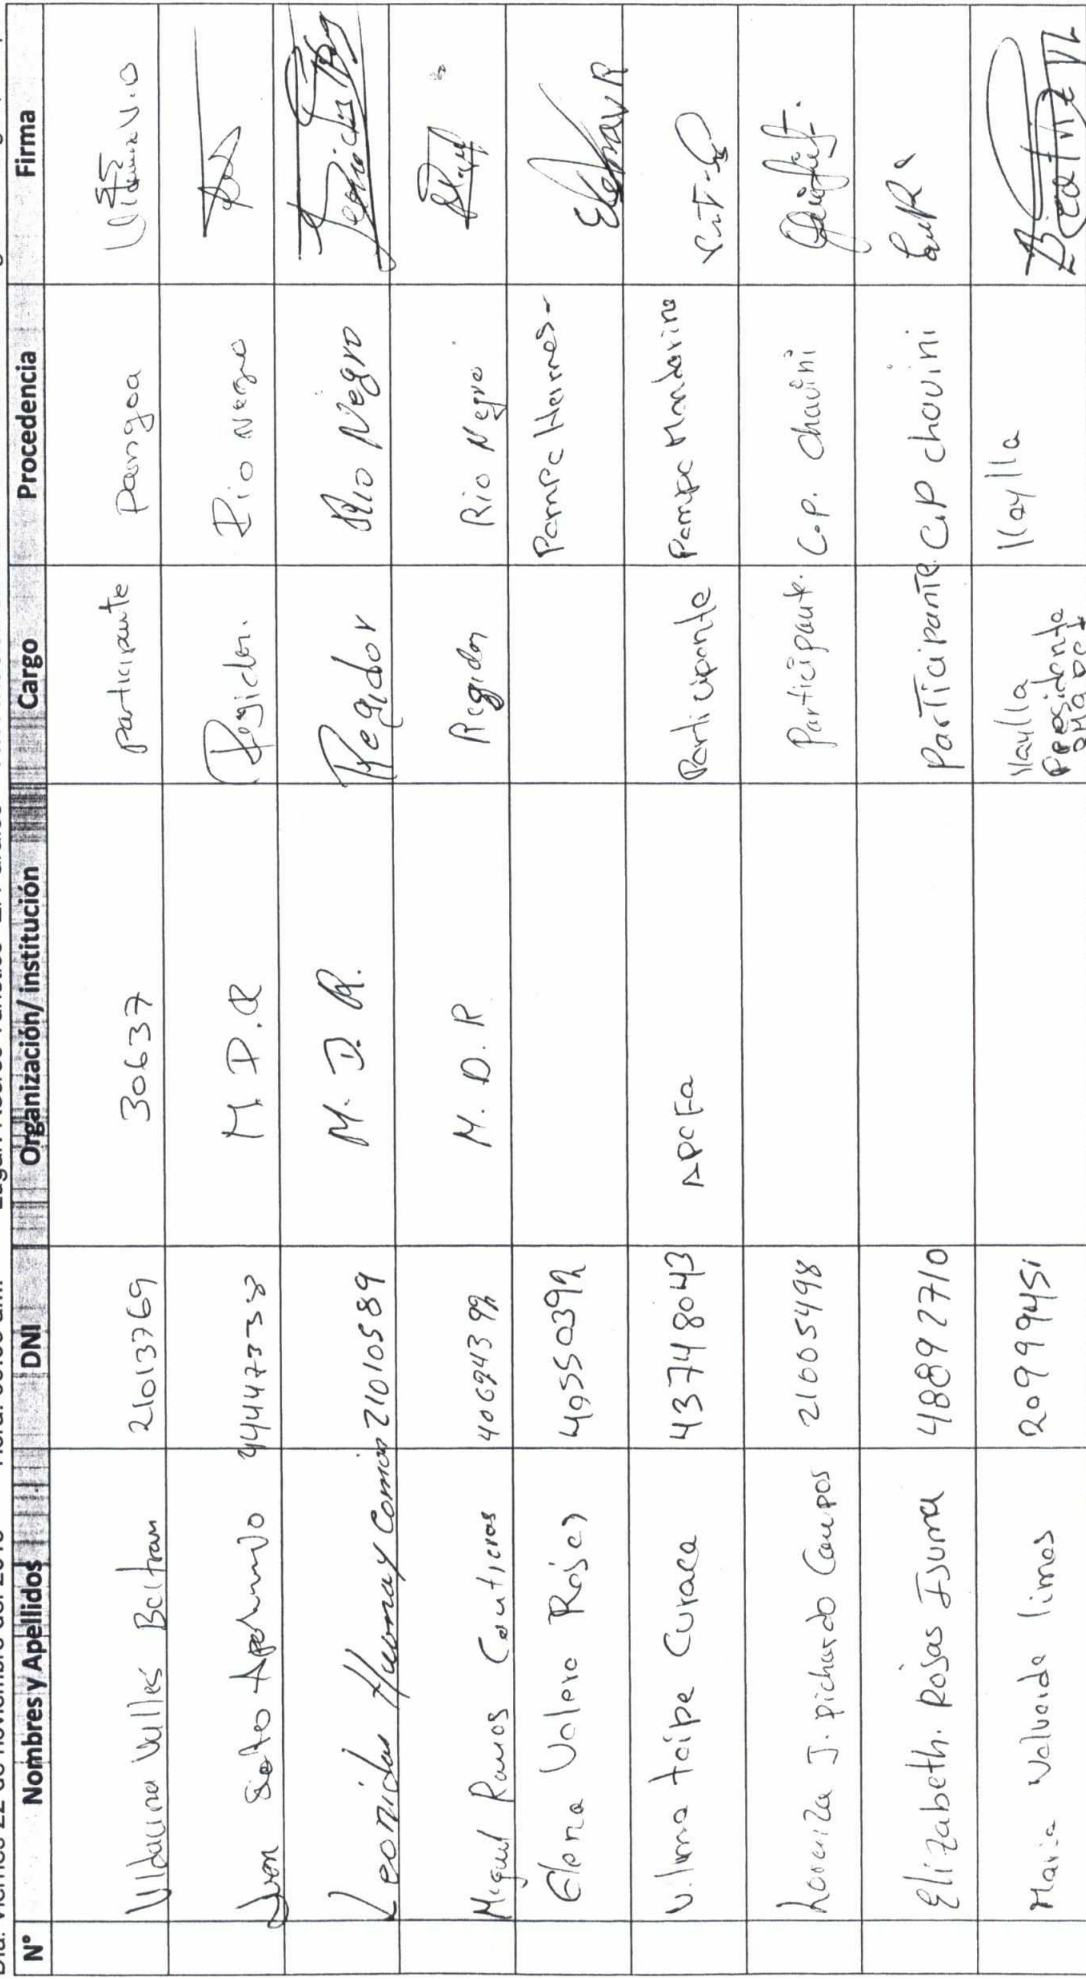 N° Nombres y Apellidos DNI Organización/ institución Cargo Procedencia Firma
Vidauna Valles Beltran 21013769 30637 participante Pangoa
Soto Apolinario Regidor. Rio Negro
Leonidas Huamay Comias 21010589 M. D. R. Regidor Rio Negro Leonidas
Miguel Ramos Contreras 40694399 M. D. R Regidor Rio Negro
Elena Valero Rojas Pampa Hermosa Elena V R
Vilma taipe Curaca 43748043 APAFA Participante Pampa
J. pichardo Campos 21005498 Participant. C.P. Chavini
Elizabeth. Rojas Isuma 48892710 Participante C.P chavini
Maria Valverde limas 20999451 llaylla
Presidenta
llaylla Beatriz VL